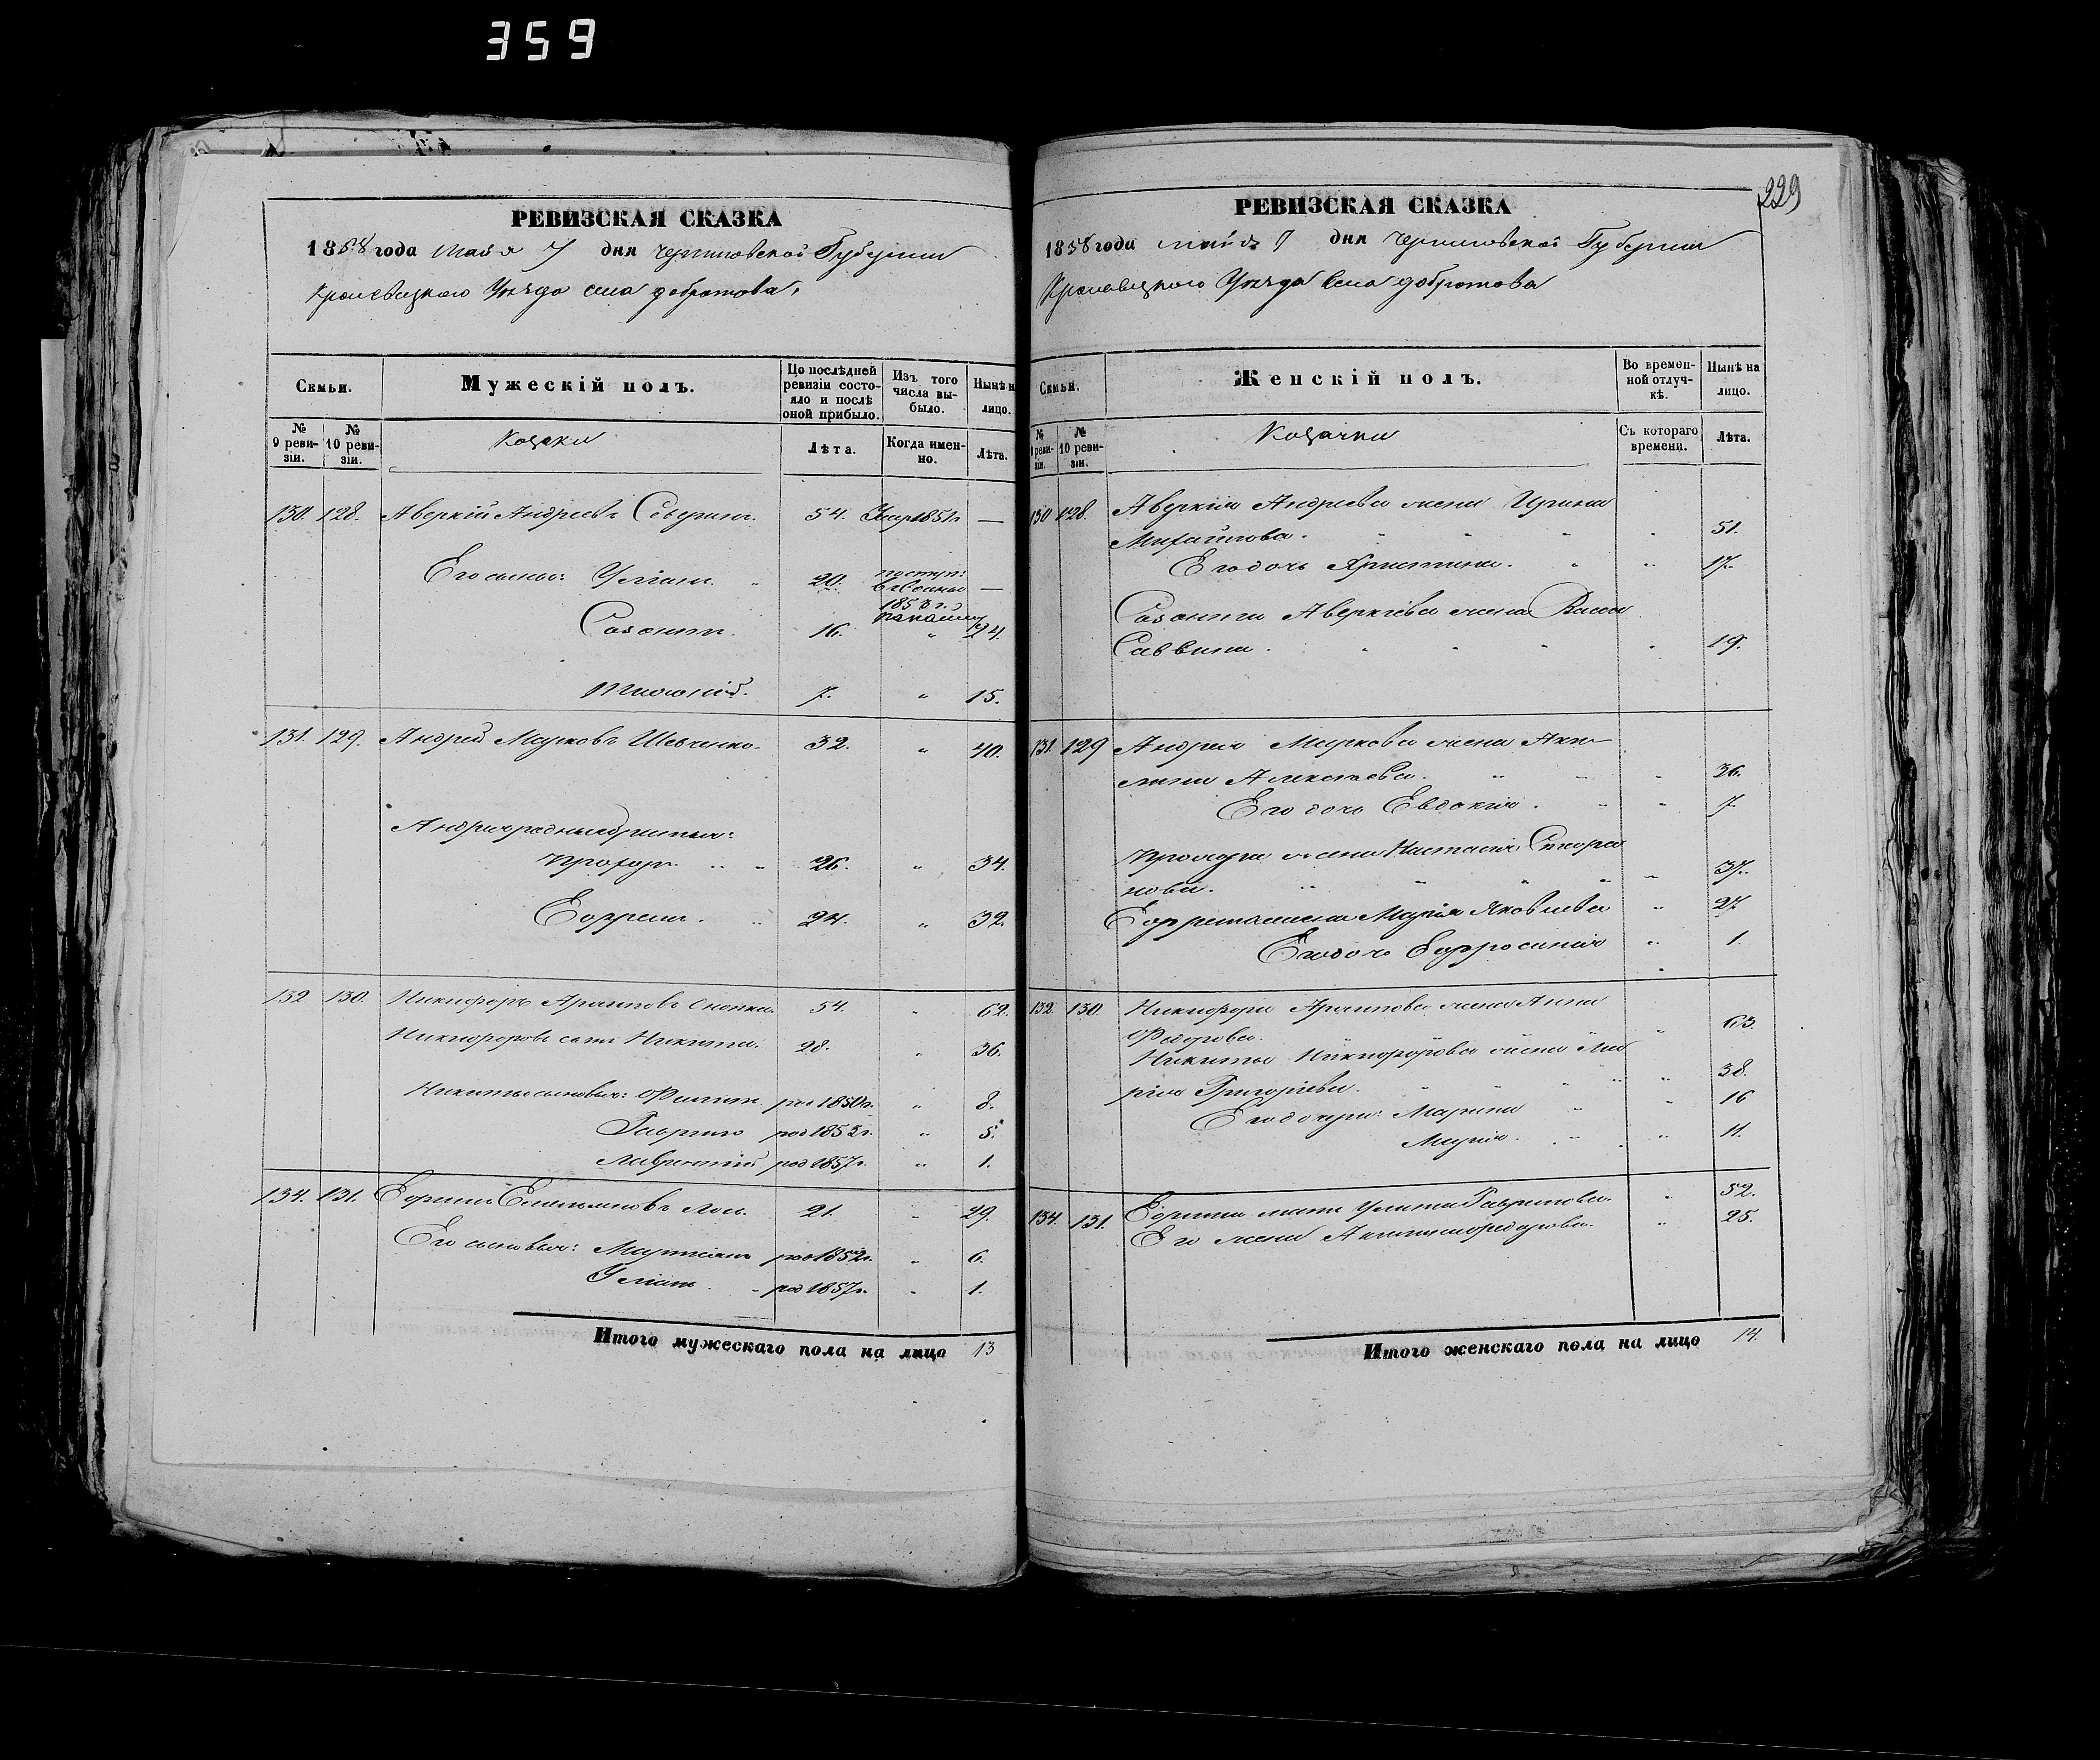 359
229
РЕВИЗСКАЯ СКАЗКА
1858 года Мая 7 дня Черниговской Губернии
Кролевецкого Уезда села Добротова,
Семьи.
Мужескій полъ.
По послѣдней ревизіи состояло и послѣ оной прибыло.
Изъ того числа выбыло.
Нынѣ на лицо.
№ 9 ревизіи.
№ 10 ревизіи.
Козаки
Лѣта.
Когда именно.
Лѣта.
130. 128. Аверкій Андреевъ Северинъ. 54. Умер 1851г —
Его сыны: Уліанъ. " 20. поступ: 1853 г. —
Созонтъ. 16. " 24.
7. " 15.
131. 129. Андрей Марковъ Шевченко. 32. " 40.
Андрея родные братья:
Прохоръ. 26. " 34.
Ефремъ. 24. " 32.
132 130. Никифоръ Архиповъ 54. " 62.
Никифоровъ сынъ Никита. 28. " 36.
Никиты сыновья: Филипъ род 1850г. " 8.
Гаврило род 1853г. " 5.
Лаврентий род 1857г. " 1.
134. 131. Емельяновъ 21. " 29.
Его сыновья: Мартинъ род 1852г. " 6.
Уліанъ. род 1857г. " 1.
Итого мужескаго пола на лицо 13
РЕВИЗСКАЯ СКАЗКА
1858 года мая 7 дня Черниговской Губернии
Кролевецкого Уезда Села Добротова
Семьи.
Женскій полъ.
Во временной отлучкѣ.
Нынѣ на лицо.
№ 9 ревизіи.
№ 10 ревизіи.
Козачки
Съ котораго времени.
Лѣта.
130 128. Аверкія Андреева жена Ирина
Михайлова. " 51.
Его дочь Христина. " 17.
Созонта Аверкіева жена Васса
Саввина. " 19.
131. 129 Андрея Маркова жена Аки-
лина Алексеева. " 36.
Его дочь Евдокія. " 7
Прохора жена Настасія Степа
нова. " 37.
Ефрема жена Марія Яковлева " 27
Его дочь Евфросинія " 1.
132. 130. Никифора Архипова жена Анна
Федорова. " 63.
Никиты Никифорова жена Ма
рія Григоріева. " 38.
Его дочери: Марина " 16
Марія. " 11.
134. 131. мать Улита Гаврилова. " 52.
Его жена Федорова. " 25.
Итого женскаго пола на лицо 14.